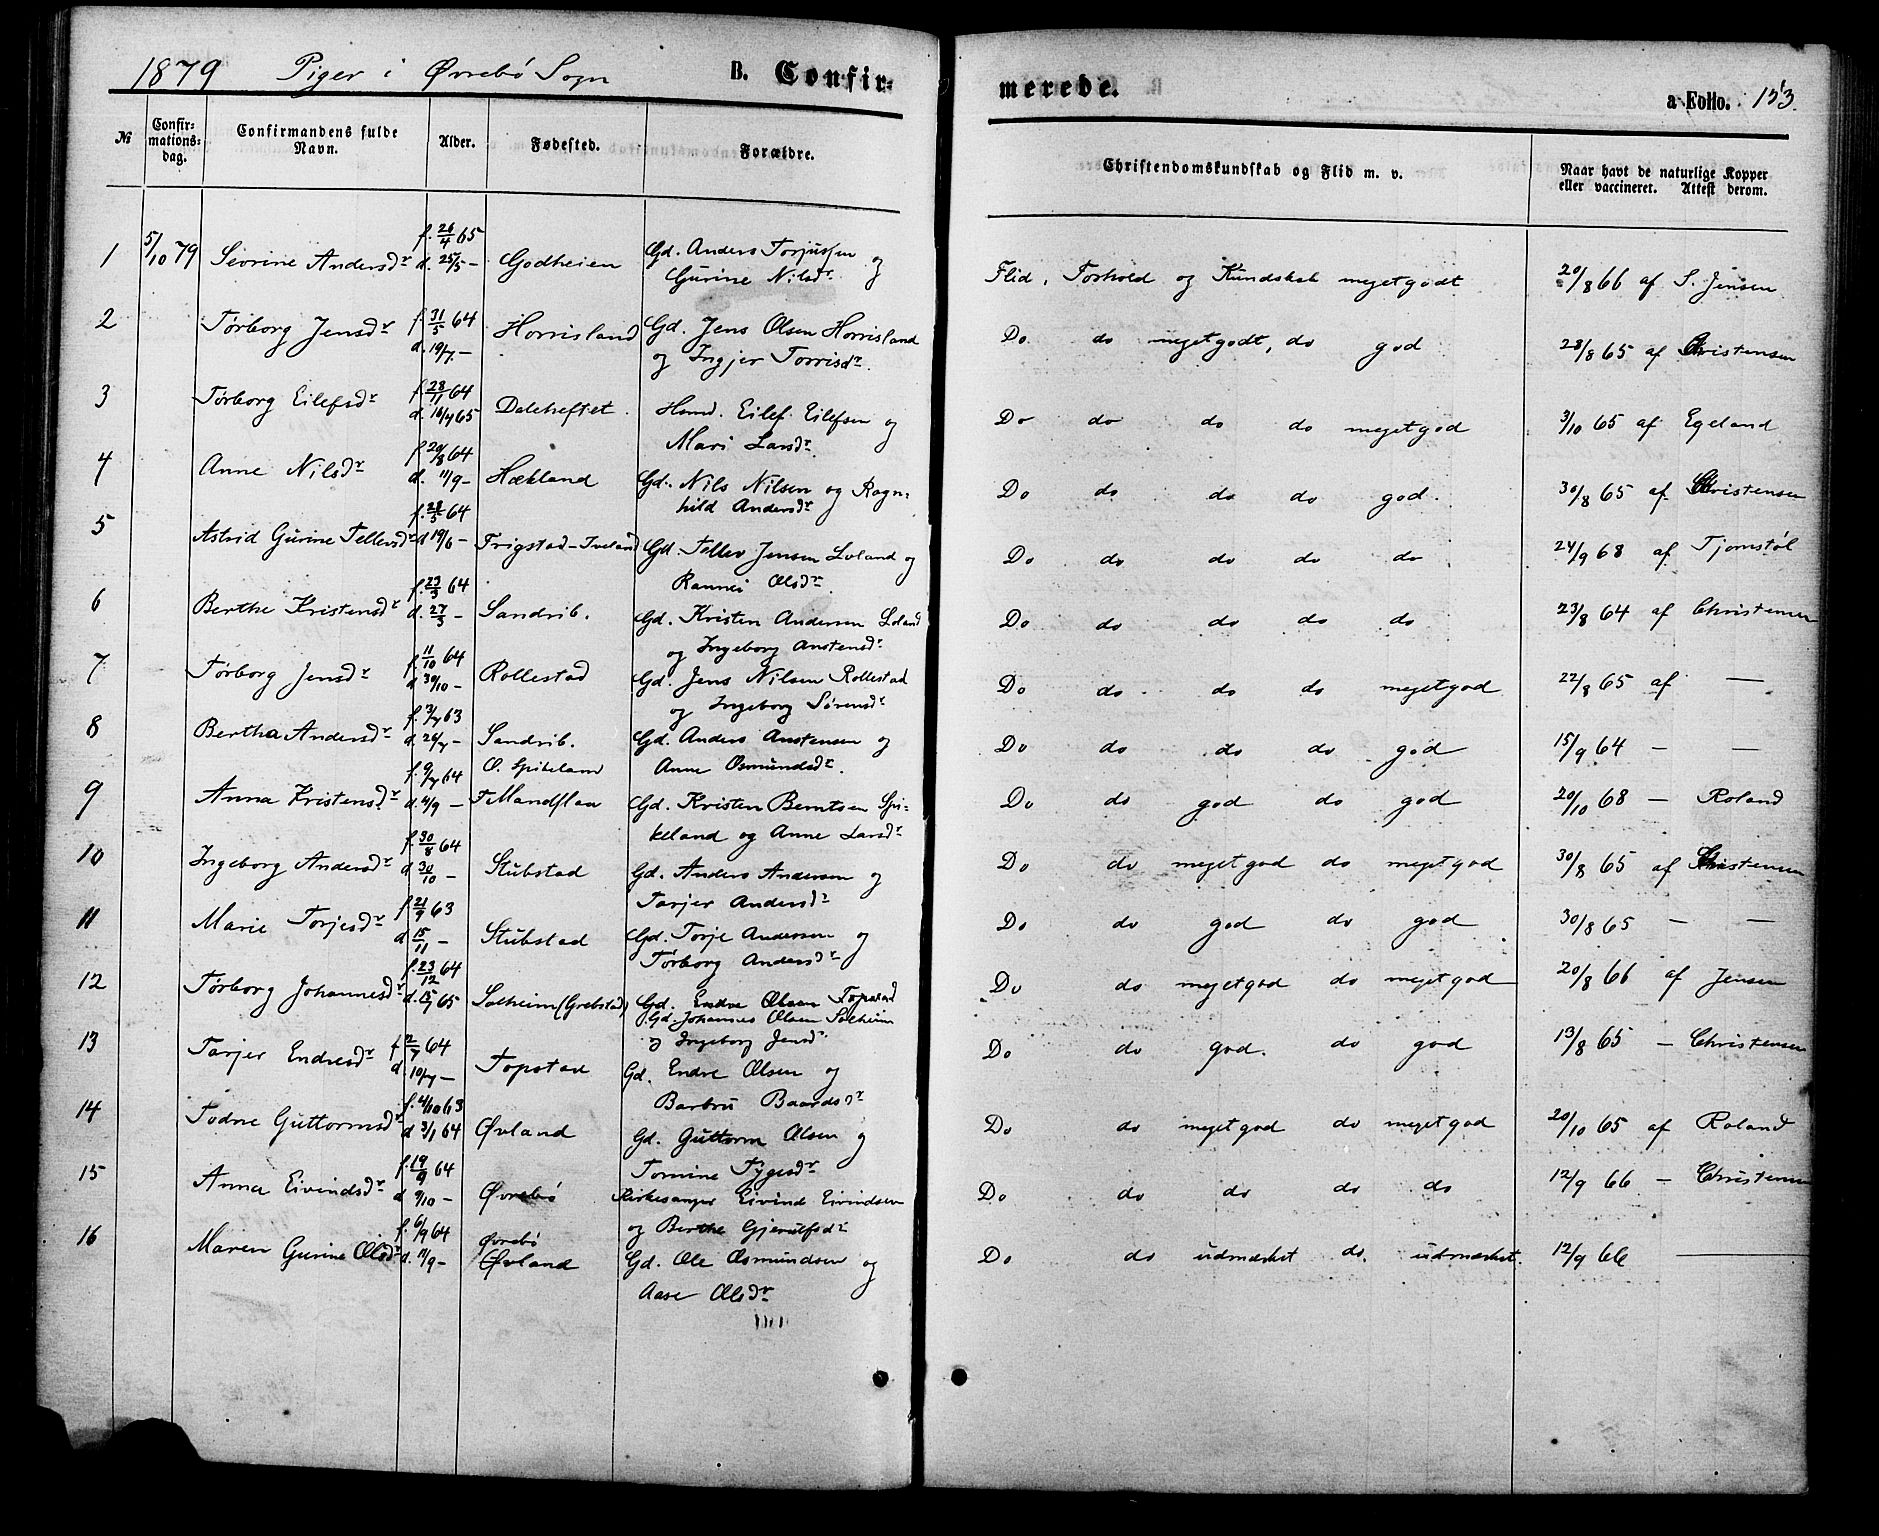 1879 Piger i Øvrebö Sogn B. Confir-
merede. a Folio. 153.
№ Confir-mations-dag. Confirmandens fulde Navn. Alder. Fødested. Forældre. Christendomskundskab og Flid m. v. Naar havt de naturlige Kopper eller vaccineret. Attest derom.
1 5/10 79 Sevrine Andersdr f. 26/4 65 d. 25/5 – Godheien Gd. Anders Torjussen og Gurine Nilsdr. Flid, Forhold og Kundskab megetgodt 20/8 66 af S. Jensen
2 Törborg Jensdr f. 31/5 64 d. 19/7 – Horrisland Gd. Jens Olsen Horrisland og Ingjer Torrisdr. Do do megetgodt, do god 28/8 65 af Christensen
3 Törborg Eilefsdr f. 28/11 64 d. 16/4 65 Daleheftet Hmd. Eilef Eilefsen og Mari Larsdr. Do do do do megetgod 3/10 65 af Egeland
4 Anne Nilsdr f. 20/8 64 d. 11/9 – Hækland Gd. Nils Nilsen og Ragn-hild Andersdr Do do do do god. 30/8 65 af Christensen
5 Astrid Gurine Tellevsdr f. 28/5 64 d 19/6 – Frigstad – Iveland Gd. Tellev Jensen Loland og Rannei Olsdr. Do do do do do 24/9 68 af Tjomstöl
6 Berthe Kristensdr f. 23/3 64 d. 27/3 – Sandrib. Gd. Kristen Andersen Loland og Ingeborg Anstensdr Do do do do do 23/8 64 af Christensen
7 Törborg Jensdr f. 11/10 64 d 30/10 – Rollestad Gd. Jens Nilsen Rollestad og Ingeborg Sörensdr Do do do do megetgod 22/8 65 af —
8 Bertha Andersdr f. 3/7 63 d. 26/7 – Sandrib. Gd. Anders Anstensen og Anne Osmundsdr. Do do do do god 15/9 64 – —
9 Anna Kristensdr f. 9/7 64 d. 4/9 – O. Spikeland F. Mandflaa Gd. Kristen Berntsen Spi-keland og Anne Larsdr Do do god do god 20/10 68 – Roland
10 Ingeborg Andersdr f. 30/8 64 d 30/10 – Stubstad Gd. Anders Andersen og Tarjer Andersdr Do do megetgod do megetgod 30/8 65 af Christensen
11 Marie Torjesdr f. 21/9 63 d 15/11 – Stubstad Gd. Torje Andersen og Törborg Andersdr Do do god do god 30/8 65 – —
12 Törborg Johannesdr f. 23/12 64 d. 65 Solheim (Grebstad) Gd. Endre Olsen Topstad Gd. Johannes Olsen Solheim og Ingeborg Jensdr Do do megetgod do megetgod 20/8 66 af Jensen
13 Tarjer Endresdr f 2/7 64 d 10/7 – Topstad Gd. Endre Olsen og Barbru Baardsdr Do do god. do god 13/8 65 – Christensen
14 Todne Guttormsdr f. 4/10 63 d 3/1 64 Øvland Gd. Guttorm Olsen og Tomine Tygesdr Do do megetgod do megetgod 20/10 65 af Roland
15 Anna Eivindsdr f. 19/9 64 d 9/10 – Øvrebö Kirkesanger Eivind Eivindsen og Berthe Gjerulfsdr Do do do do do 12/9 66 – Christensen
16 Maren Gurine Olsdr f. 6/9 64 d. 11/9 – Øvrebö Øvland Gd. Ole Osmundsen og Aase Olsdr Do do udmærket do. udmærket. 12/9 66 —